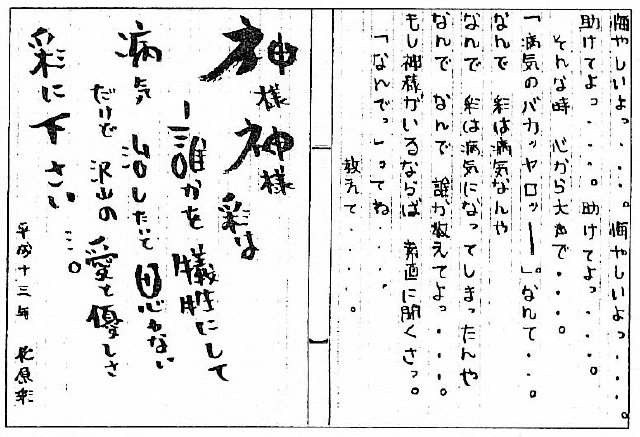 悔やしいよっ・・・・。悔やしいよっ・・・・。
助けてよっ・・・・。助けてよっ・・・・。
そんな時 心から大声で・・・・。
「病気のバカッヤロッー」。なんて・・・。
なんで 彩は病気なんや
なんで 彩は病気になってしまったんや
なんで なんで 誰か教えてよっ・・・・。
もし神様がいるならば 素直に聞くさっ。
「なんでっ」ってね・・・・
教えて・・・・。
神様 神様 彩は
誰かを犠牲にして
病気 治したいて思わない
だけど 沢山の愛と優しさ
彩に下さい…。
平成十三年 原彩